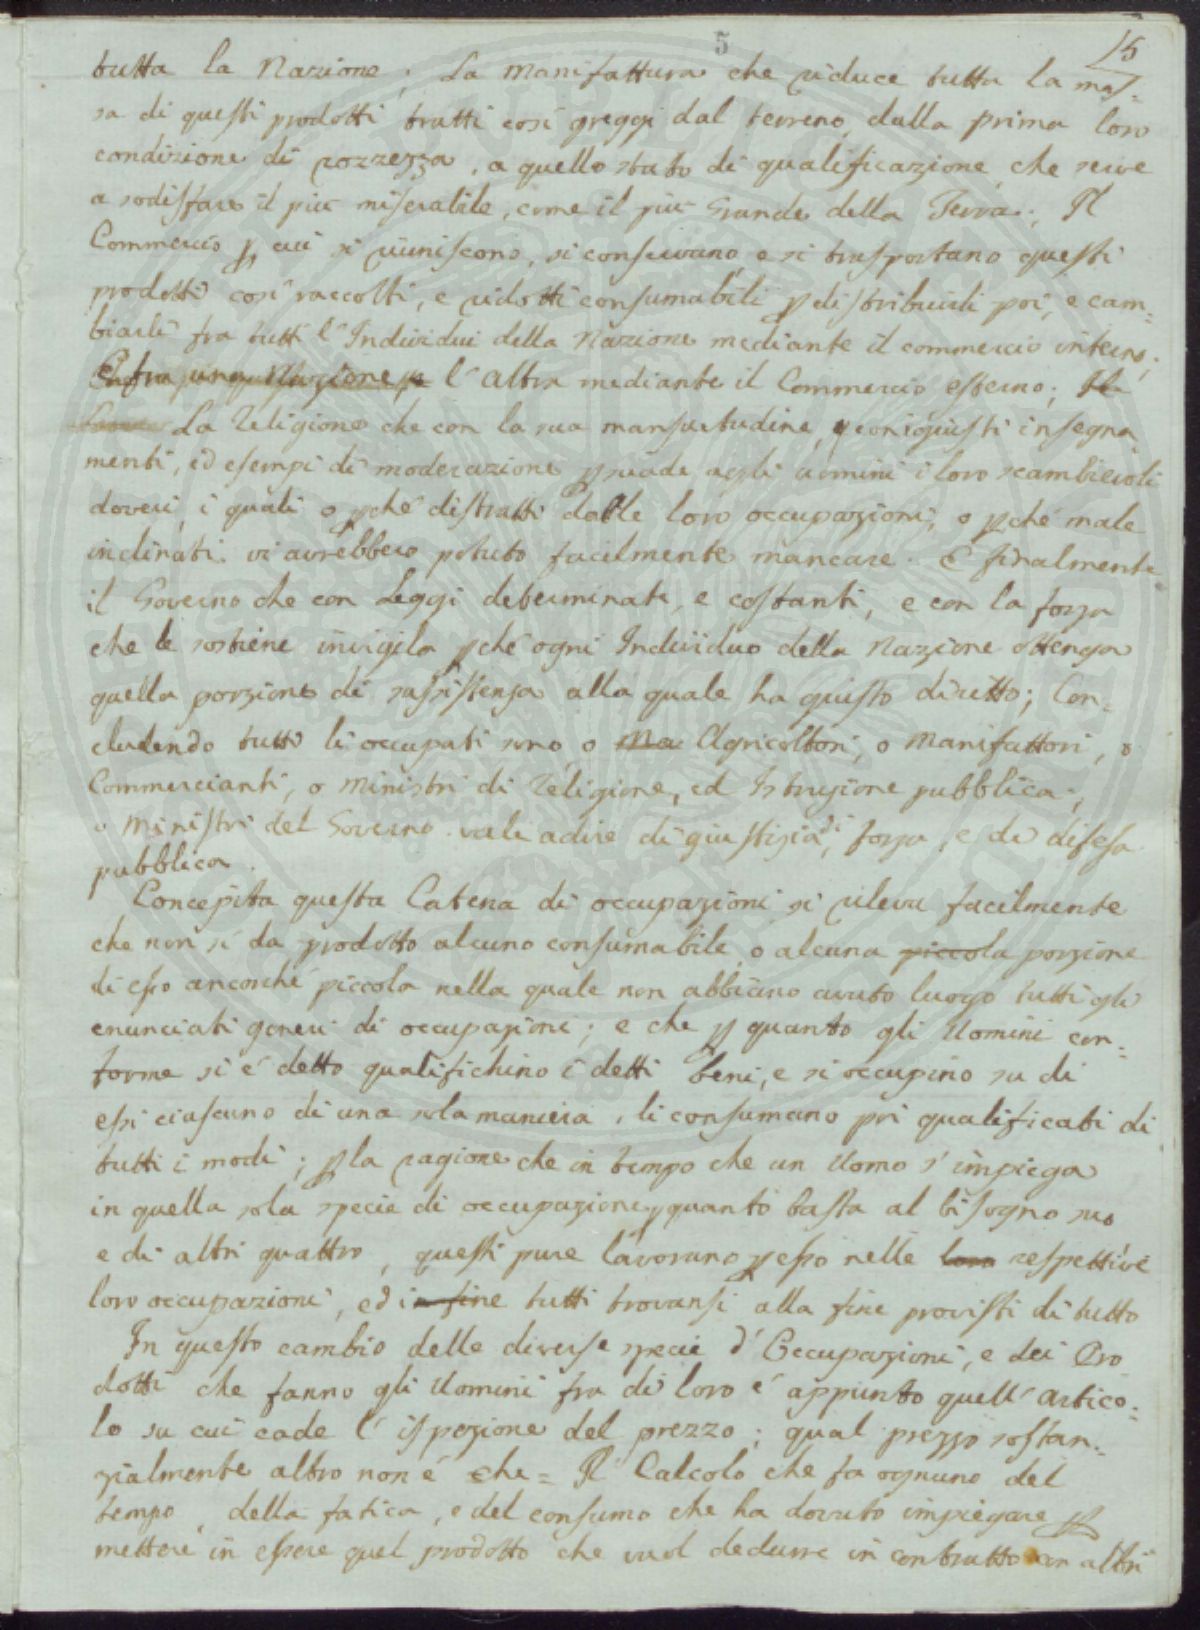 5
15
tutta la Nazione; La Manifattura che riduce tutta la mas=
sa di questi prodotti tratti così greggi dal terreno, dalla prima loro
condizione di rozzezza, a quello stato di qualificazione, che serve
a sodisfare il più miserabile, come il più Grande della Terra; Il
Commercio p cui si riuniscono, si conservano, e si trasportano questi
prodotti così raccolti, e ridotti consumabili p distribuirli poi, e cam=
biarli fra tutti l'Individui della Nazione mediante il commercio interno;
E fra una Nazione, e l'altra mediante il Commercio esterno; Il
La Religione che con la sua mansuetudine, e con i giusti insegna
menti, ed esempi di moderazione psuade agli uomini i loro scambievoli
doveri, i quali o pché distratti dalle loro occupazioni, o pché male
inclinati vi avrebbero potuto facilmente mancare. E finalmente
il Governo che con Leggi determinate, e costanti, e con la forza
che le sostiene invigila pché ogni Individuo della Nazione ottenga
quella porzione di sussistenza alla quale ha giusto diritto; Con=
cludendo tutti li occupati sono, o Ma Agricoltori, o Manifattori, o
Commercianti, o Ministri di Religione, ed Istruzione pubblica;
o Ministri del Governo vale a dire di giustizia, di forza, e di difesa
pubblica.
Concepita questa Catena di occupazioni si rileva facilmente
che non si da prodotto alcuno consumabile, o alcuna piccola porzione
di esso ancorché piccola nella quale non abbiano avuto luogo tutti gli
enunciati generi di occupazioni; e che p quanto gli Uomini con=
forme si é detto qualifichino i detti beni, e si occupino su di
essi ciascuno di una sola maniera, li consumano poi qualificati di
tutti i modi; p la ragione che in tempo che un Uomo s'impiega
in quella sola specie di occupazione p quanto basta al bisogno suo
e di altri quattro, questi pure lavorano p esso nelle loro respettive
loro occupazioni, ed in fine tutti trovansi alla fine provisti di tutto
In questo cambio delle diverse specie d'Occupazioni, e dei Pro
dotti che fanno gli Uomini fra di loro é appunto quell'artico=
lo su cui cade l'ispezione del prezzo; qual prezzo sostan=
zialmente altro non é che = Il Calcolo che fa ognuno del
tempo, della fatica, e del consumo che ha dovuto impiegare p
mettere in essere quel prodotto che vuol dedurre in contratto con altri